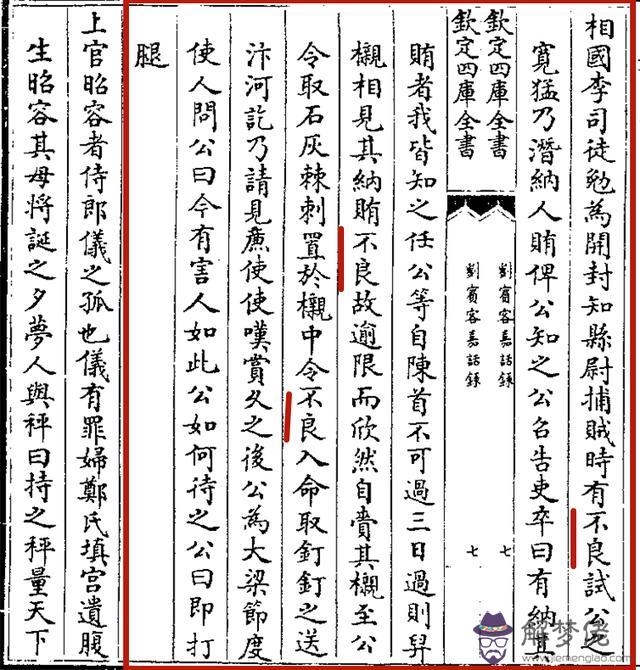 相國李司徒勉為開封知縣尉捕賊時有不良試公之
寛猛乃潛納人賄俾公知之公名告吏卒曰有納其
欽定四庫全書
劉賓客嘉話録
七
欽定四庫全書
劉賓客嘉話録
七
賄者我皆知之任公等自陳首不可過三日過則舁
櫬相見其納賄不良故逾限而欣然自賷其櫬至公
令取石灰棘刺置於櫬中令不良入命取釘釘之送
汴河訖乃請見廉使使嘆賞久之後公為大梁節度
使人問公曰今有害人如此公如何待之公曰即打
腿
上官昭容者侍郎儀之孤也儀有罪婦鄭氏填宫遺腹
生昭容其母將誕之夕夢人與秤曰持之秤量天下
解梦佬
www.jiemenglao.com